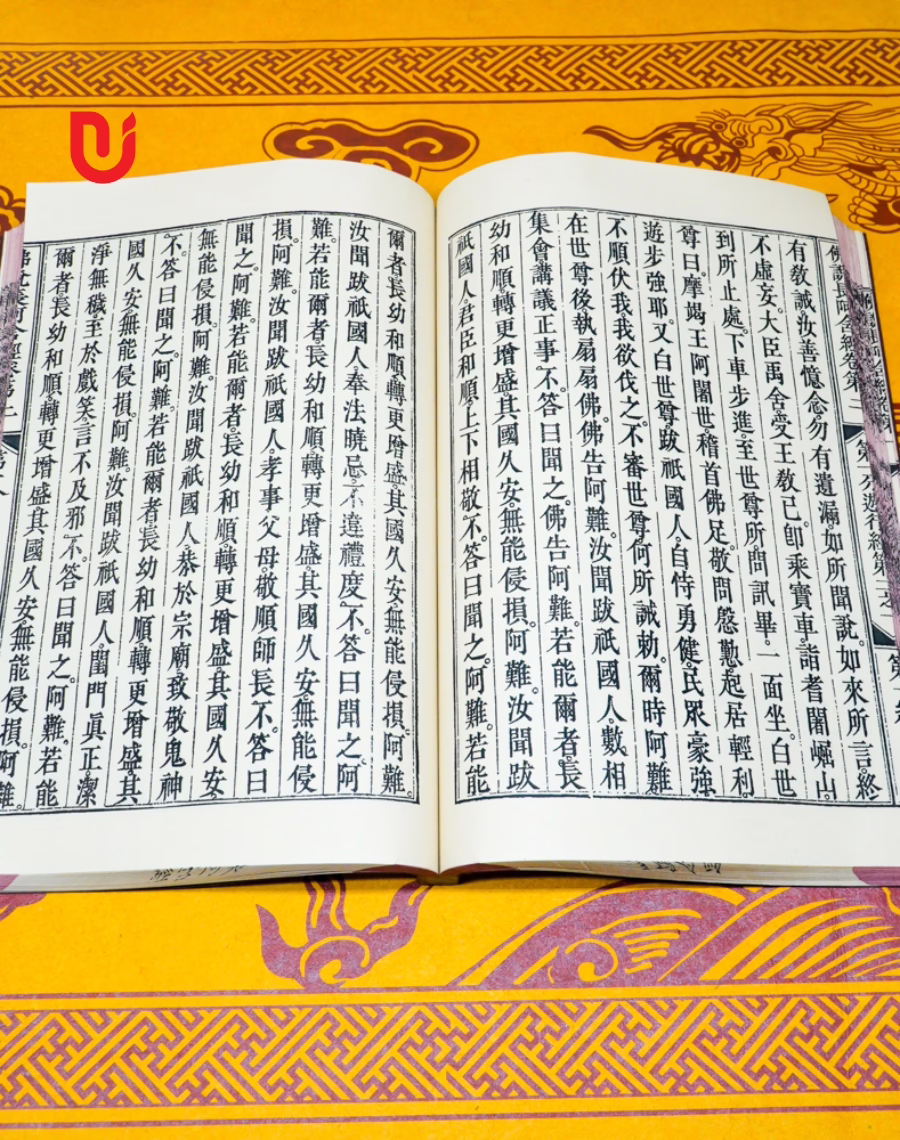 佛說長阿含經卷第二　第一分遊行經第二之一
有教誡。汝善憶念。勿有遺漏。如所聞說。如來所言。終
不虛妄。大臣禹舍。受王教已。卽乘寶車。詣耆闍崛山。
到所止處。下車步進。至世尊所。問訊畢。一面坐。白世
尊曰。摩竭王阿闍世。稽首佛足。敬問慇懃。起居輕利。
遊步強耶。又白世尊。跋祇國人。自恃勇健。民眾豪強。
不順伏我。我欲伐之。不審世尊。何所誡勅。爾時阿難。
在世尊後。執扇扇佛。佛告阿難。汝聞跋祇國人。數相
集會。講議正事。不。答曰聞之。佛告阿難。若能爾者。長
幼和順。轉更增盛。其國久安。無能侵損。阿難。汝聞跋
祇國人。君臣和順。上下相敬。不。答曰聞之。阿難。若能
爾者。長幼和順。轉更增盛。其國久安。無能侵損。阿難。
汝聞跋祇國人。奉法曉忌。不違禮度。不。答曰聞之。阿
難。若能爾者。長幼和順。轉更增盛。其國久安。無能侵
損。阿難。汝聞跋祇國人。孝事父母。敬順師長。不。答曰
聞之。阿難。若能爾者。長幼和順。轉更增盛。其國久安。
無能侵損。阿難。汝聞跋祇國人。恭於宗廟。致敬鬼神。
不。答曰聞之。阿難。若能爾者。長幼和順。轉更增盛。其
國久安。無能侵損。阿難。汝聞跋祇國人。閨門眞正。潔
淨無穢。至於戲笑。言不及邪。不。答曰聞之。阿難。若能
爾者。長幼和順。轉更增盛。其國久安。無能侵損。阿難。